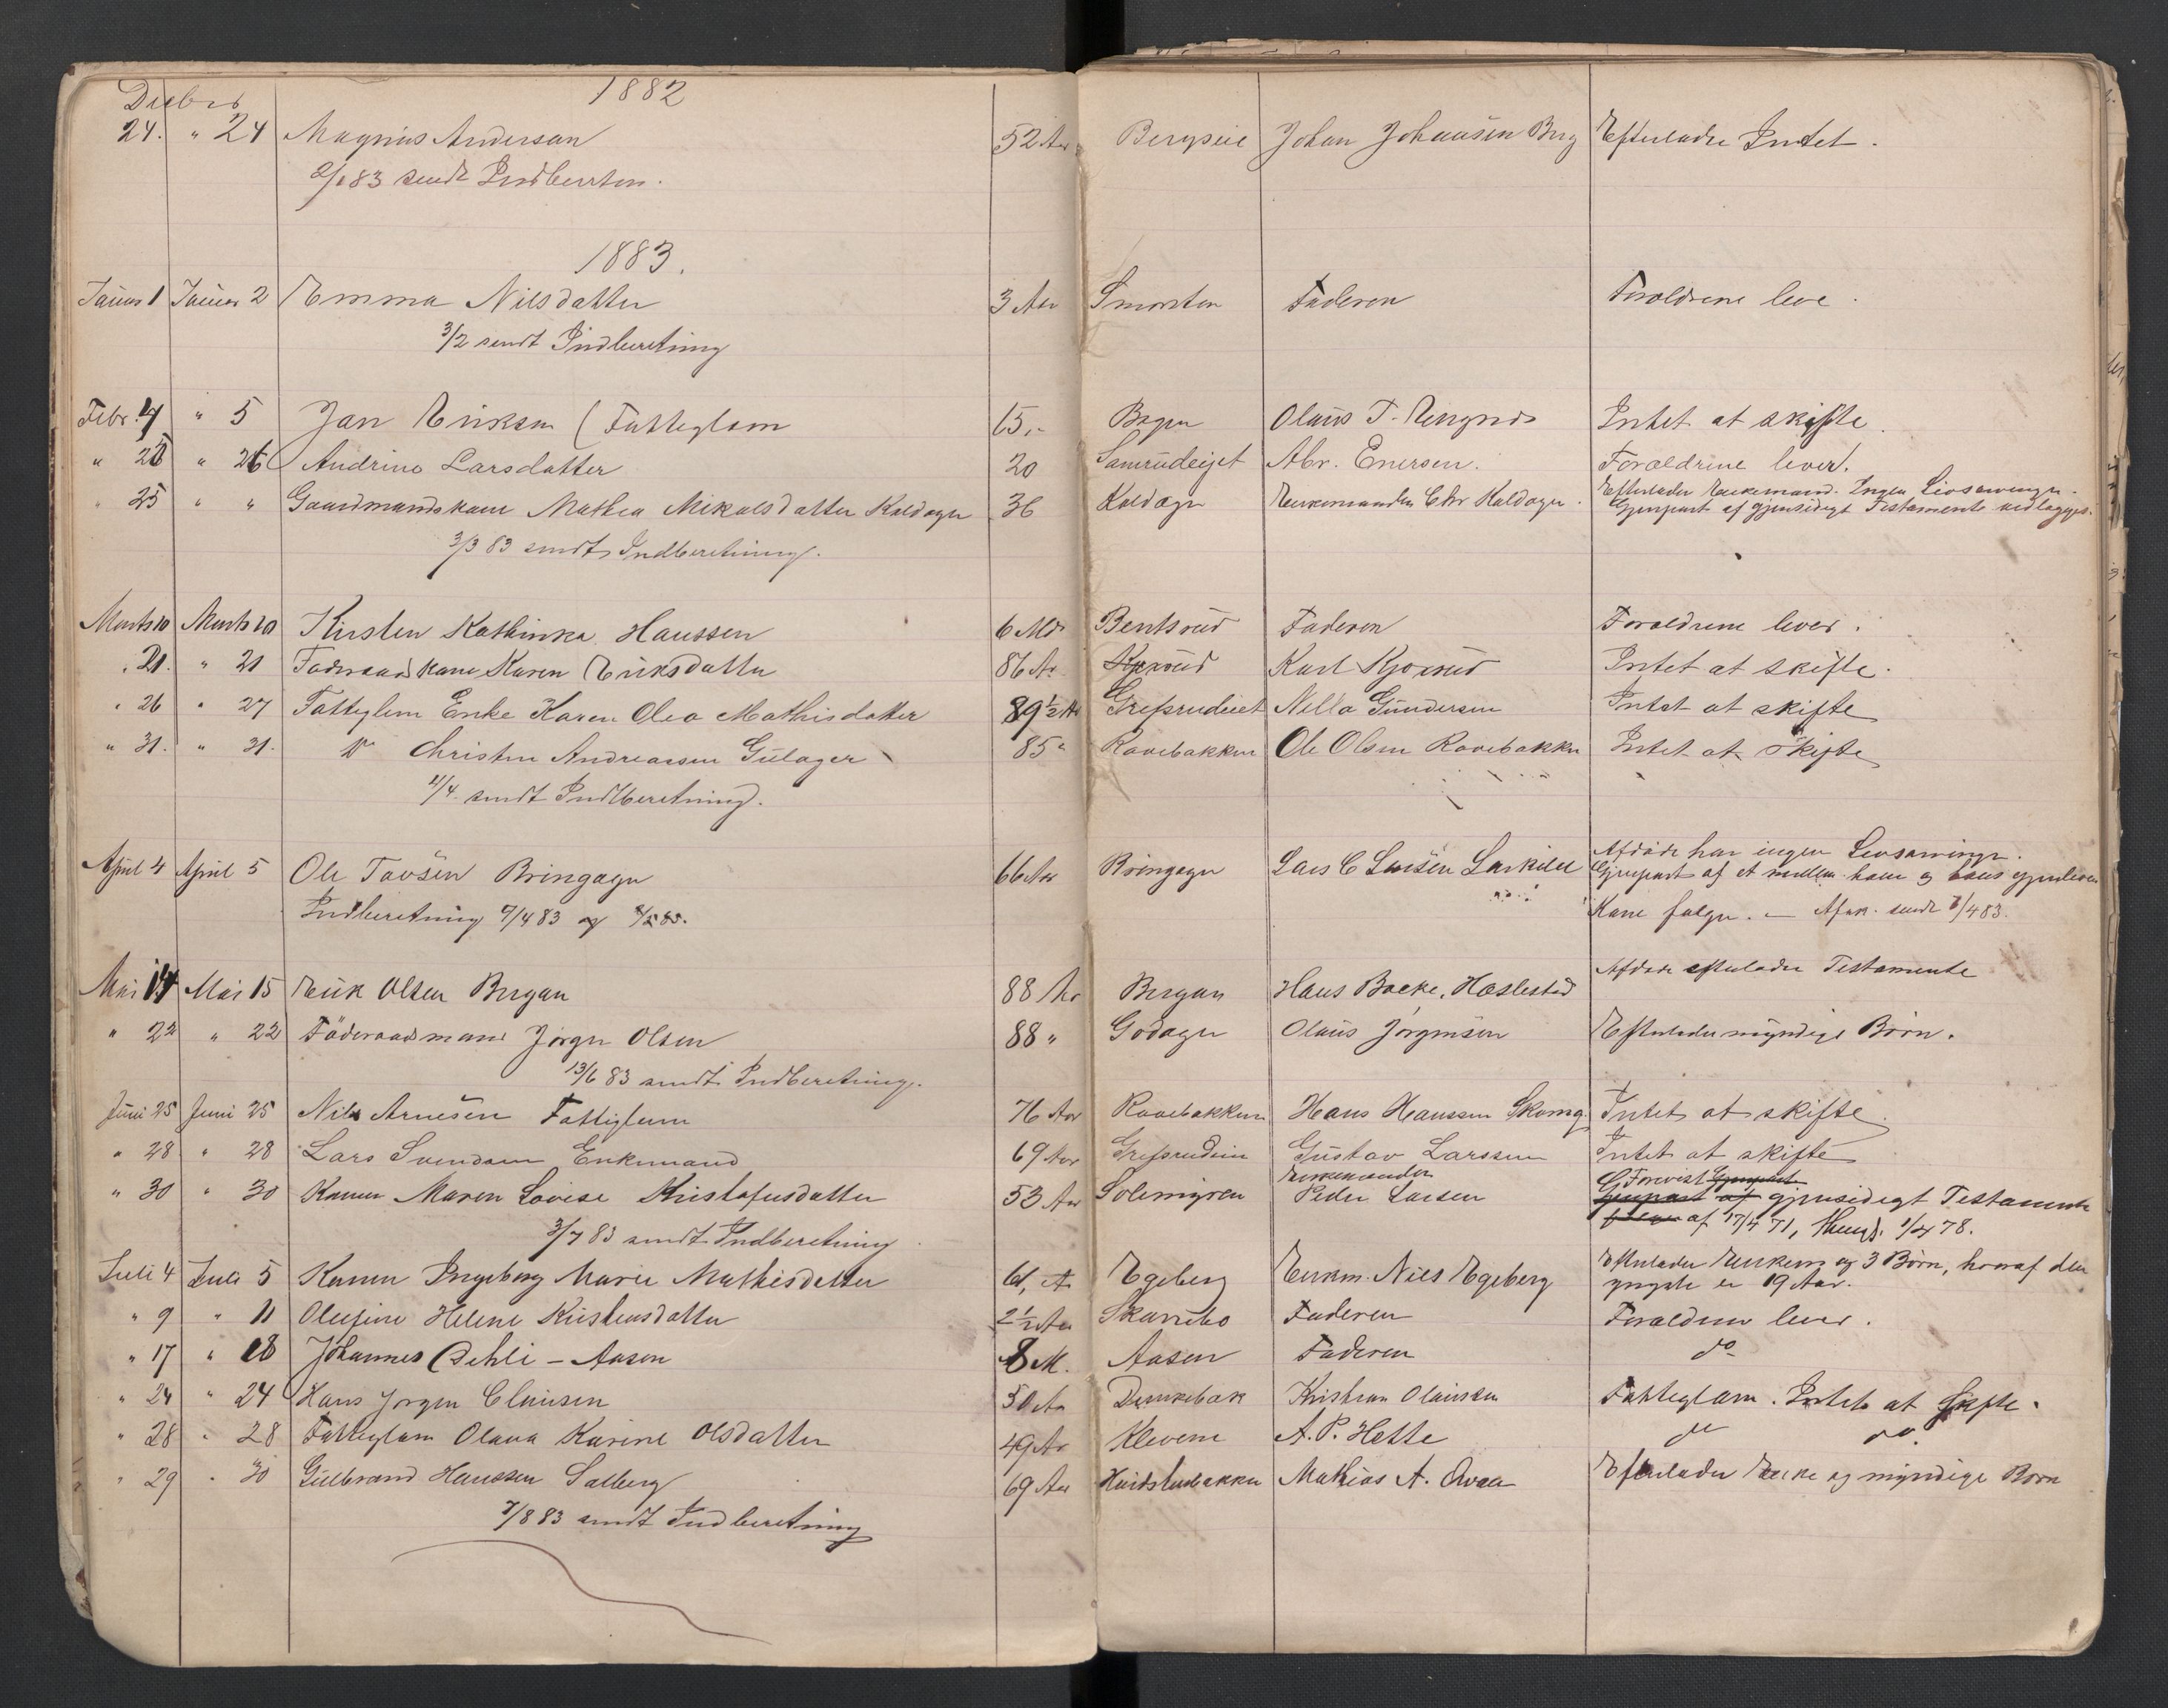 1882
Decbr
24. " 24 Magnus Anderson 52 Aar Bergseie Johan Johansen Berg Efterlader Intet.
2/1 83 sendt Indberetn.
1883.
Januar 1 Januar 2 Emma Nilsdatter 3 Aar Smorsten Faderen Foraldrene leve.
3/2 sendt Indberetning
Febr. 4 " 5 Jan Eriksen (Fatteglem 15 " Olaus T. Intet at skifte.
" 26 " 26 Andrine Larsdatter 20 Samrudeiget Abr. Enersen. Foraldrene lever.
" 25 " " Gaardmandskone Mathea Mikalsdatter Kaldager 36 Kaldager Enkemanden Chr Kaldager. Efterlader Enkemand. Ingen Livsarvinger.
Gjenpart af gjensidigt Testamente vedlægges.
3/3 83 sendt Indberetning.
Marts 10 Marts 10 Kirsten Kathinka Hanssen 6 Mdr Bentsrud Faderen Foraldrene lever.
" 21. " 21 Foderaadskone Karen Eriksdatter 86 Ar Kjøsrud Karl Kjøsrud Intet at skifte.
" 26 " 27 Fatteglem Enke Karen Olea Mathisdatter 89 ½ Ar Grefsrudeiet Nella Gundersen Intet at skifte
" 31. " 31. do Christen Andreassen Gulager 85 " Ravebakken Ole Olsen Ravebakken Intet at skifte
11/4. sendt Indberetning.
April 4 April 5 Ole Tavsen Bringager 66 Aar Bringager Lars C Larsen Afdøde har ingen Livsarvinger.
Gjenpart af et mellem ham og hans gjenlevende
Indberetning 9/4 83 og Kone følger. — Afsk. sendt 7/4 83.
Mai 14 Mai 15 Erik Olsen Bergan 88 Ar Bergan Hans Bakke, Haslestad Afdøde efterlader Testamente
" 22 " 22 Föderaadsmand Jørgen Olsen 88 " Godager Olaus Jørgensen Efterlader myndige Børn.
13/6 83 sendt Indberetning.
Juni 25 Juni 25 Nils Arnesen Fattiglem 76 Aar Ravebakken Hans Hanssen Skomg. Intet at skifte
" 28 " 28 Lars Svendsen Enkemand 69 Aar Grefsrudeie Gustav Larssen Intet at skifte
" 30 " 30 Konen Maren Lovise Kristofersdatter 53 Aar Solemyren Enkemanden
Peder Larsen Forevist Gjenpart
Gjenpart af gjensidigt Testamente
følger af 17/4 71, 1/4 78.
3/7 83 sendt Indberetning
Juli 4 Juli 5 Konen Ingeborg Marie Mathisdatter 61, A Egeberg Enkem. Nils Egeberg Efterlader Enkem og 3 Børn, hvoraf den
yngste er 19 Aar.
" 9 " 11 Olefine Helene Kristensdatter 2 ½ Aar Skarrebo Faderen Foraldrene lever.
" 17 " 18 Johannes Oehli - Aasen 8 M. Aasen Faderen do
" 24 " 24 Hans Jørgen Clausen 50 Aar Kristian Olaussen Fatteglem. Intet at skifte.
" 28 " 28 Fatteglem Olava Karine Olsdatter 49 Ar Klevene A. P. Hette do do.
" 29 " 30 Gulbrand Hanssen Solberg 69 Aar Mathias A. Efterlader Enke og myndige Børn
7/8 83 sendt Indberetning